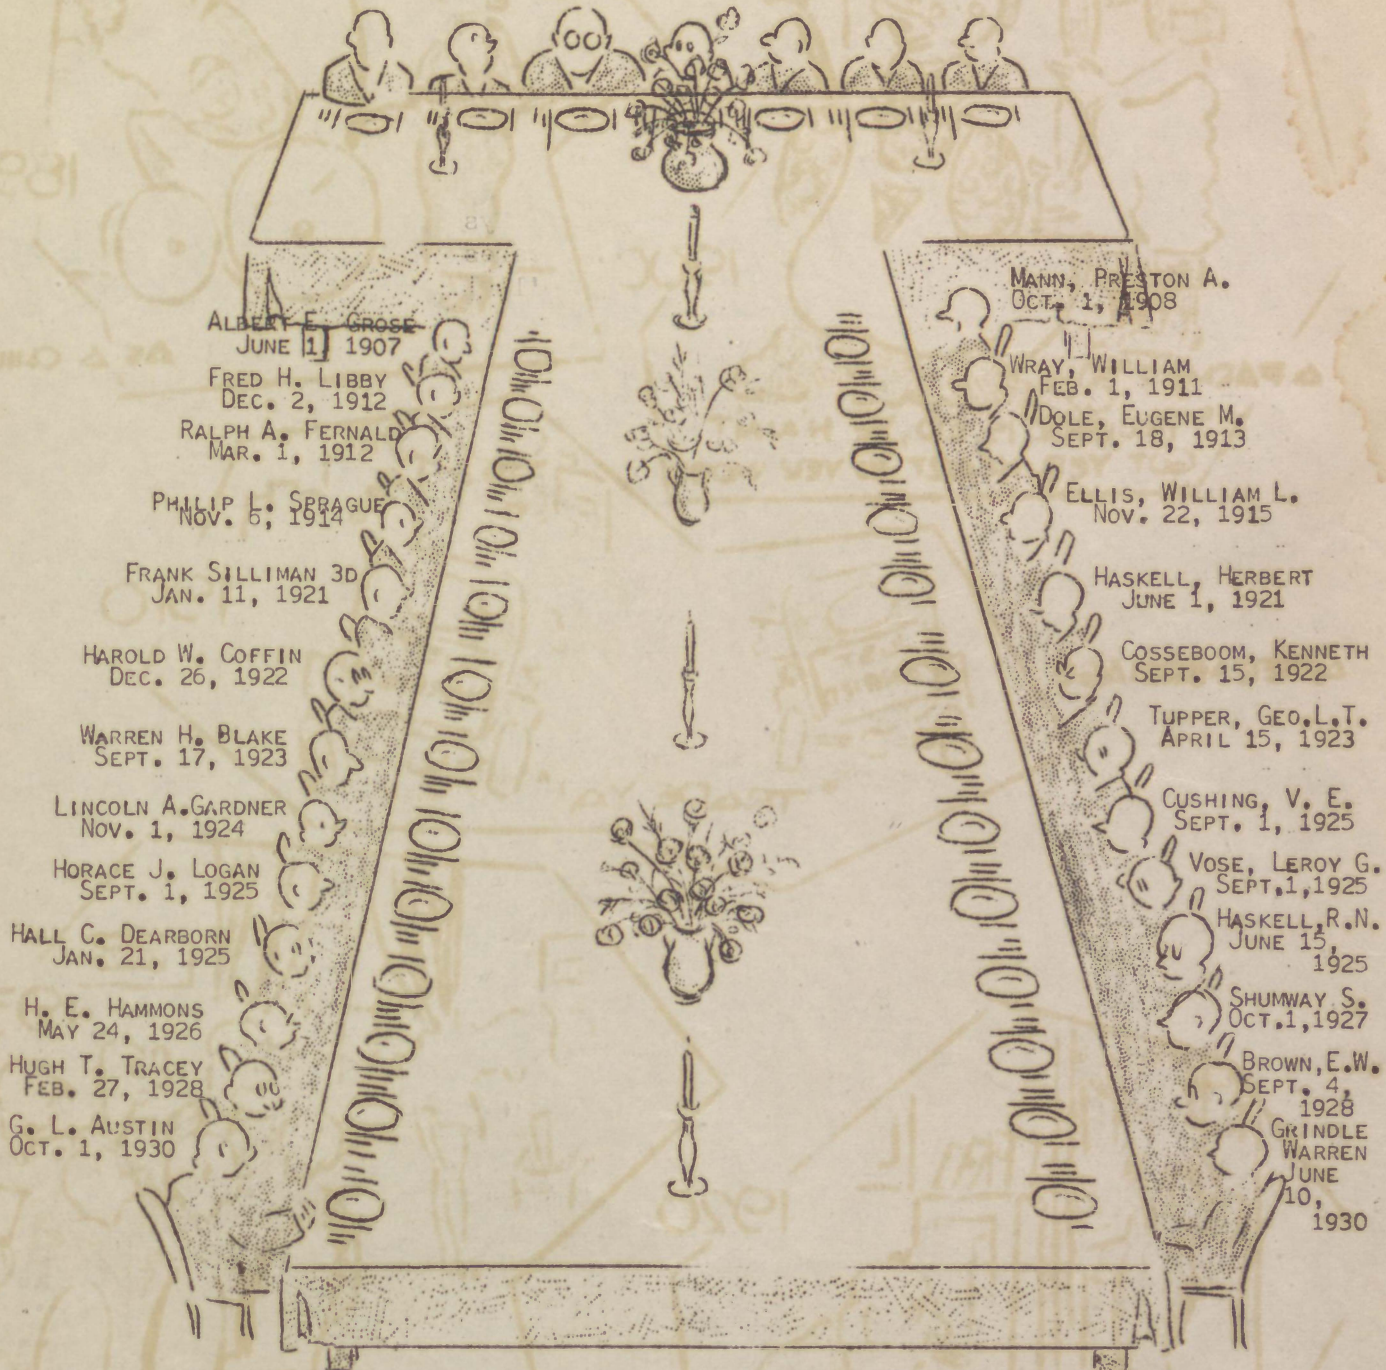 ALBERT E. GROSE
JUNE 1, 1907
FRED H. LIBBY
DEC. 2, 1912
RALPH A. FERNALD
MAR. 1, 1912
PHILIP L. SPRAGUE
NOV. 6, 1914
FRANK SILLIMAN 3D
JAN. 11, 1921
HAROLD W. COFFIN
DEC. 26, 1922
WARREN H. BLAKE
SEPT. 17, 1923
LINCOLN A.GARDNER
NOV. 1, 1924
HORACE J. LOGAN
SEPT. 1, 1925
HALL C. DEARBORN
JAN. 21, 1925
H. E. HAMMONS
MAY 24, 1926
HUGH T. TRACEY
FEB. 27, 1928
G. L. AUSTIN
OCT. 1, 1930
MANN, PRESTON A.
OCT. 1, 1908
WRAY, WILLIAM
FEB. 1, 1911
DOLE, EUGENE M.
SEPT. 18, 1913
ELLIS, WILLIAM L.
NOV. 22, 1915
HASKELL, HERBERT
JUNE 1, 1921
COSSEBOOM, KENNETH
SEPT. 15, 1922
TUPPER, GEO.L.T.
APRIL 15, 1923
CUSHING, V. E.
SEPT. 1, 1925
VOSE, LEROY G.
SEPT.1,1925
HASKELL,R.N.
JUNE 15,
1925
SHUMWAY S.
OCT.1,1927
BROWN,E.W.
SEPT. 4,
1928
GRINDLE
WARREN
JUNE
10,
1930